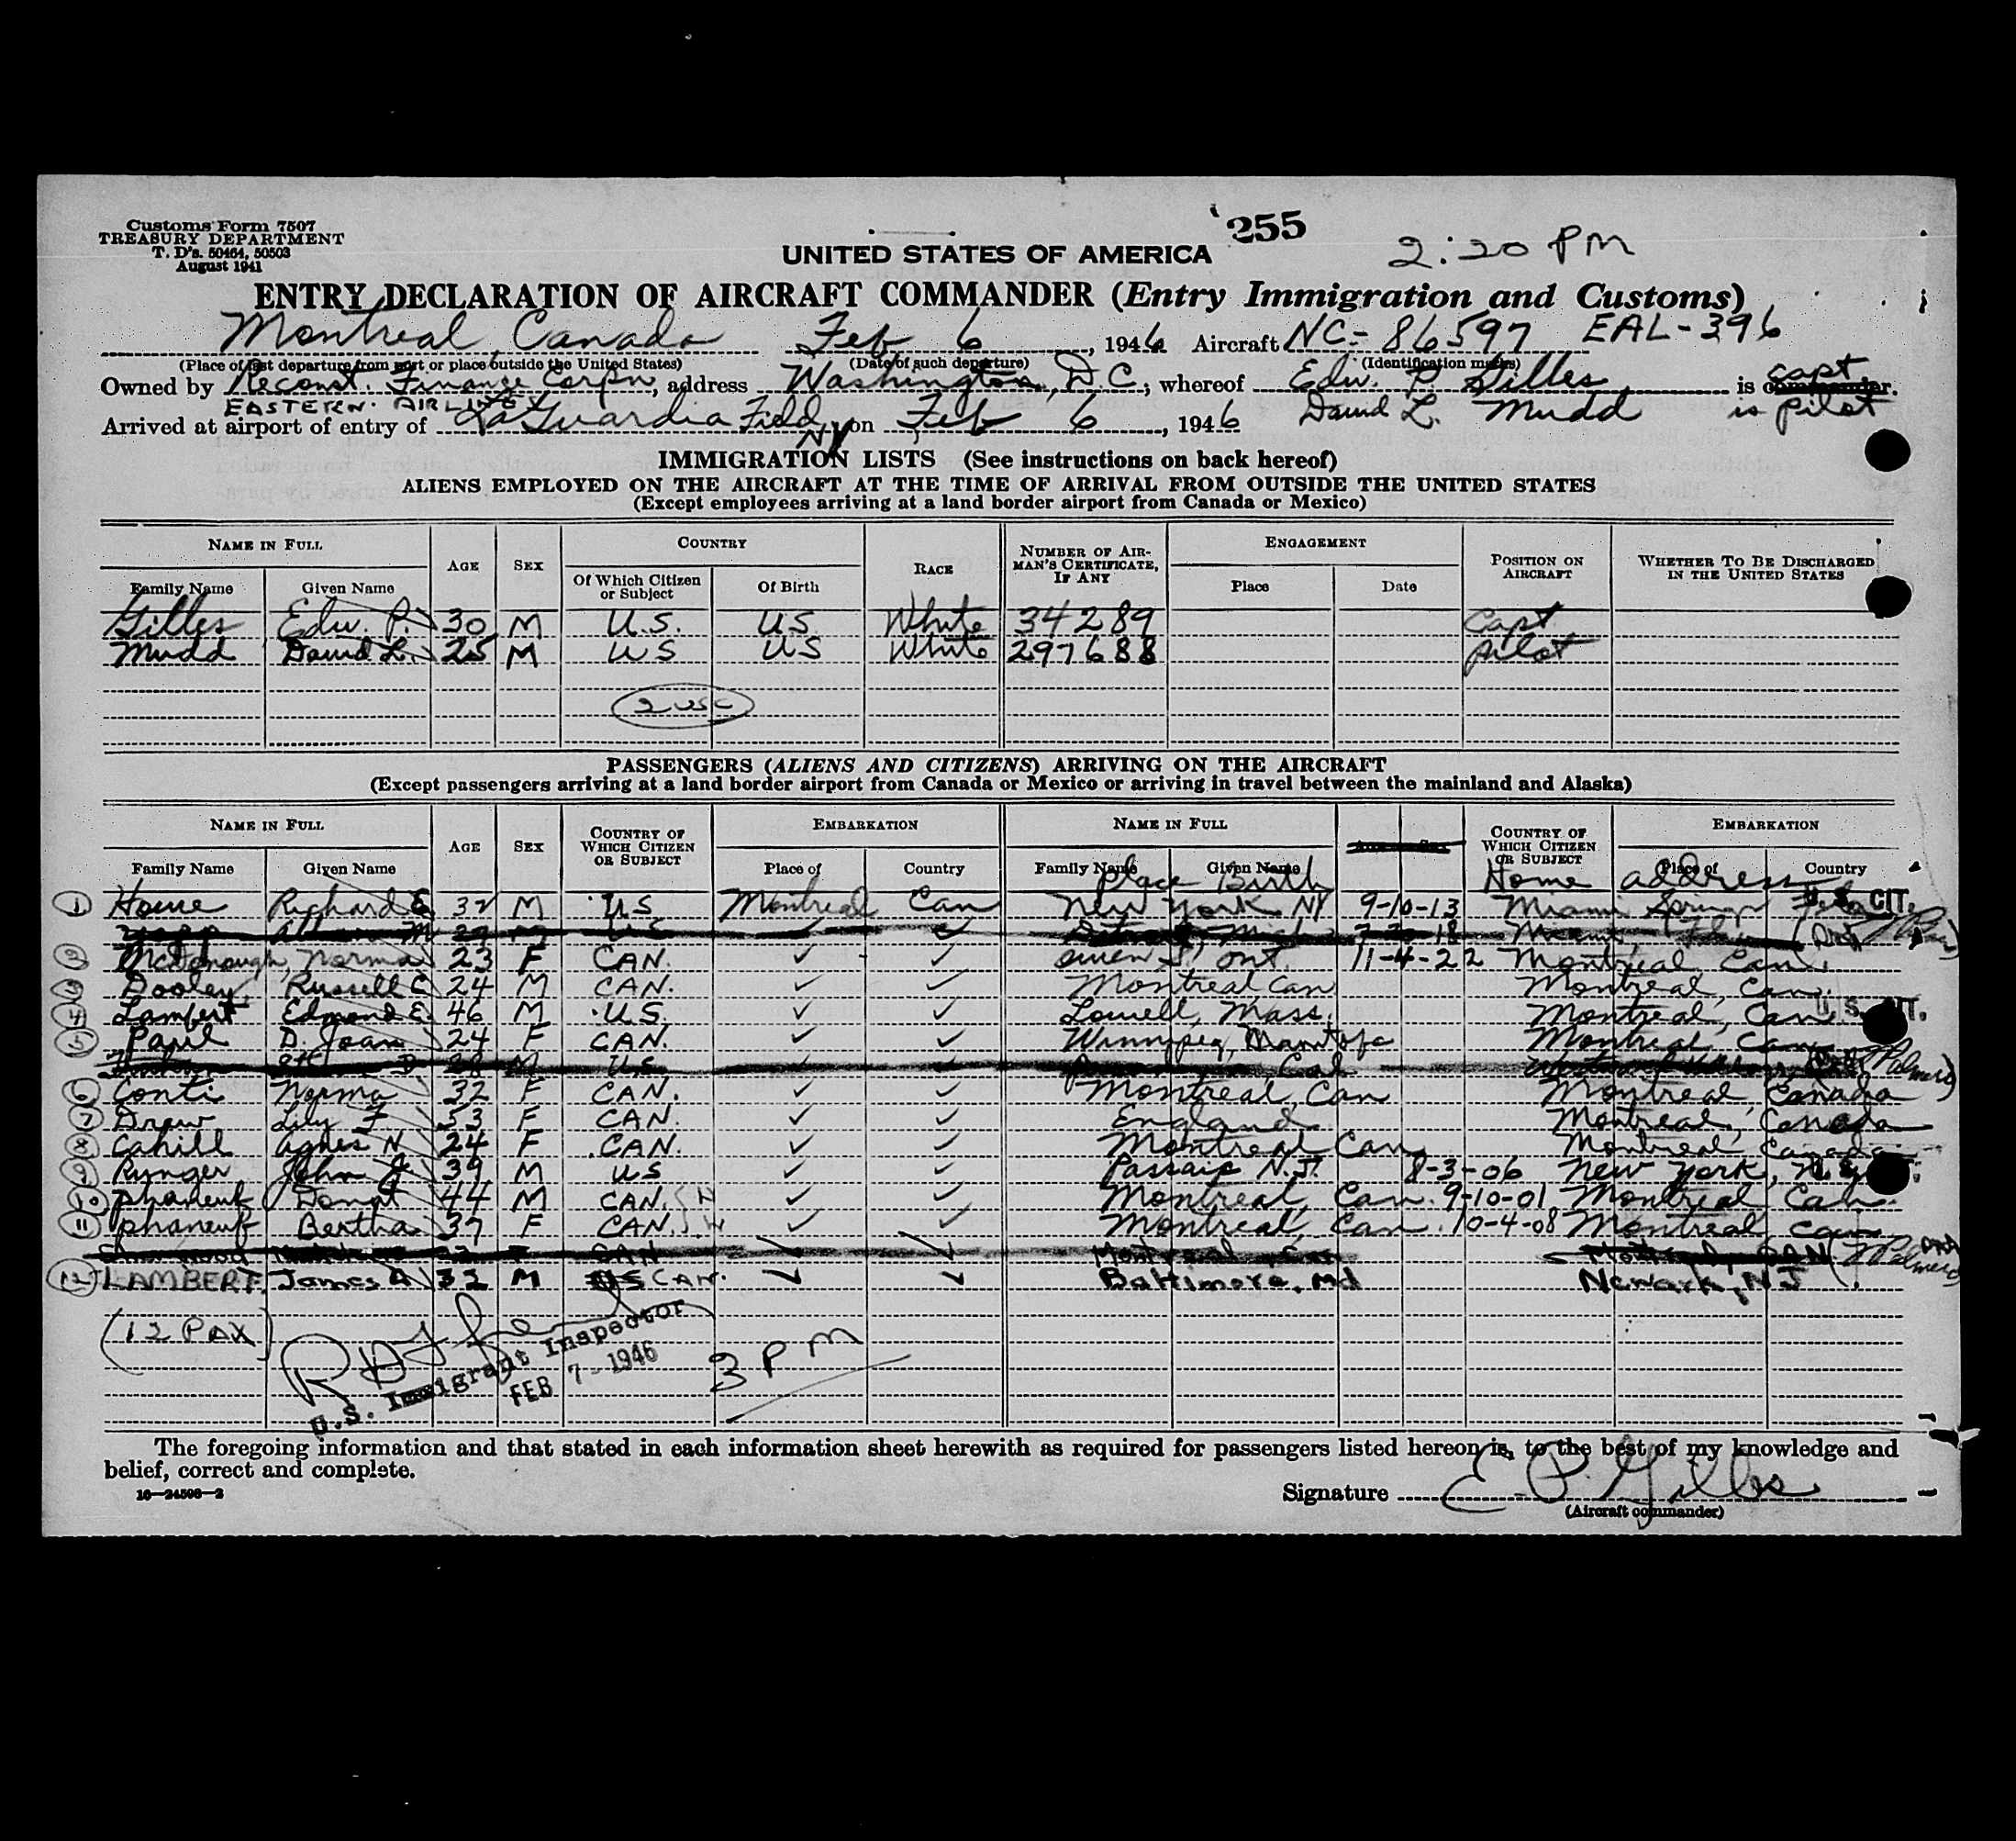 Customs Form 7507
TREASURY DEPARTMENT
T. D's. 50464, 50503
August 1941
255
UNITED STATES OF AMERICA
2:20 PM
ENTRY DECLARATION OF AIRCRAFT COMMANDER (Entry Immigration and Customs)
Montreal Canada Feb 6, 1946 Aircraft NC-86597 EAL-396
(Place of last departure from port or place outside the United States) (Date of such departure) (Identification marks) capt
Owned by Reconst. Finance Corpn, address Washington, D.C., whereof Edw. P. Gilles is commander.
EASTERN AIRLINES
Arrived at airport of entry of La Guardia Field, NY on Feb 6, 1946 David L. Mudd is pilot
IMMIGRATION LISTS (See instructions on back hereof)
ALIENS EMPLOYED ON THE AIRCRAFT AT THE TIME OF ARRIVAL FROM OUTSIDE THE UNITED STATES
(Except employees arriving at a land border airport from Canada or Mexico)
NAME IN FULL AGE SEX COUNTRY RACE NUMBER OF AIRMAN'S CERTIFICATE, IF ANY ENGAGEMENT POSITION ON AIRCRAFT WHETHER TO BE DISCHARGED IN THE UNITED STATES
Family Name Given Name Of Which Citizen or Subject Of Birth Place Date
Gilles Edw. P. 30 M U.S. US White 34289 Capt
Mudd David L. 25 M US US White 297688 pilot
2 USC
PASSENGERS (ALIENS AND CITIZENS) ARRIVING ON THE AIRCRAFT
(Except passengers arriving at a land border airport from Canada or Mexico or arriving in travel between the mainland and Alaska)
NAME IN FULL AGE SEX COUNTRY OF WHICH CITIZEN OR SUBJECT EMBARKATION NAME IN FULL COUNTRY OF WHICH CITIZEN OR SUBJECT EMBARKATION
Family Name Given Name Place of Country Family Name Given Name Place of Country
Place Birth Home address
1 Howe Richard E. 32 M US Montreal Can New York NY 9-10-13 Miami Springs Fla U.S. CIT.
2 McDonough, Norma 23 F CAN. ✓ ✓ Owen S. Ont. 11-4-22 Montreal, Can.
3 Dooley Russell C 24 M CAN. ✓ ✓ Montreal Can Montreal, Can.
4 Lambert Edmond E. 46 M U.S. ✓ ✓ Lowell, Mass. Montreal, Can U.S. CIT.
5 Paul D. Joan 24 F CAN. ✓ ✓ Winnipeg, Manitoba Montreal Can
6 Conti Norma 32 F CAN. ✓ ✓ Montreal, Can Montreal, Canada
7 Drew Lily F 53 F CAN. ✓ ✓ England Montreal, Canada
8 Cahill Agnes N. 24 F CAN. ✓ ✓ Montreal Can Montreal Canada
9 Rynger John J. 39 M US ✓ ✓ Passaic N.J. 8-3-06 New York, N.Y.
10 Phaneuf Donat 44 M CAN. ✓ ✓ Montreal, Can. 9-10-01 Montreal Can.
11 Phaneuf Bertha 37 F CAN. ✓ ✓ Montreal, Can. 10-4-08 Montreal Can
12 LAMBERT James A 32 M US CAN. ✓ ✓ Baltimore, Md Newark, NJ
(12 PAX)
U.S. Immigrant Inspector
FEB 7-1946
3 PM
The foregoing information and that stated in each information sheet herewith as required for passengers listed hereon is, to the best of my knowledge and
belief, correct and complete.
16—24596—2
Signature E. P. Gilles
(Aircraft commander)